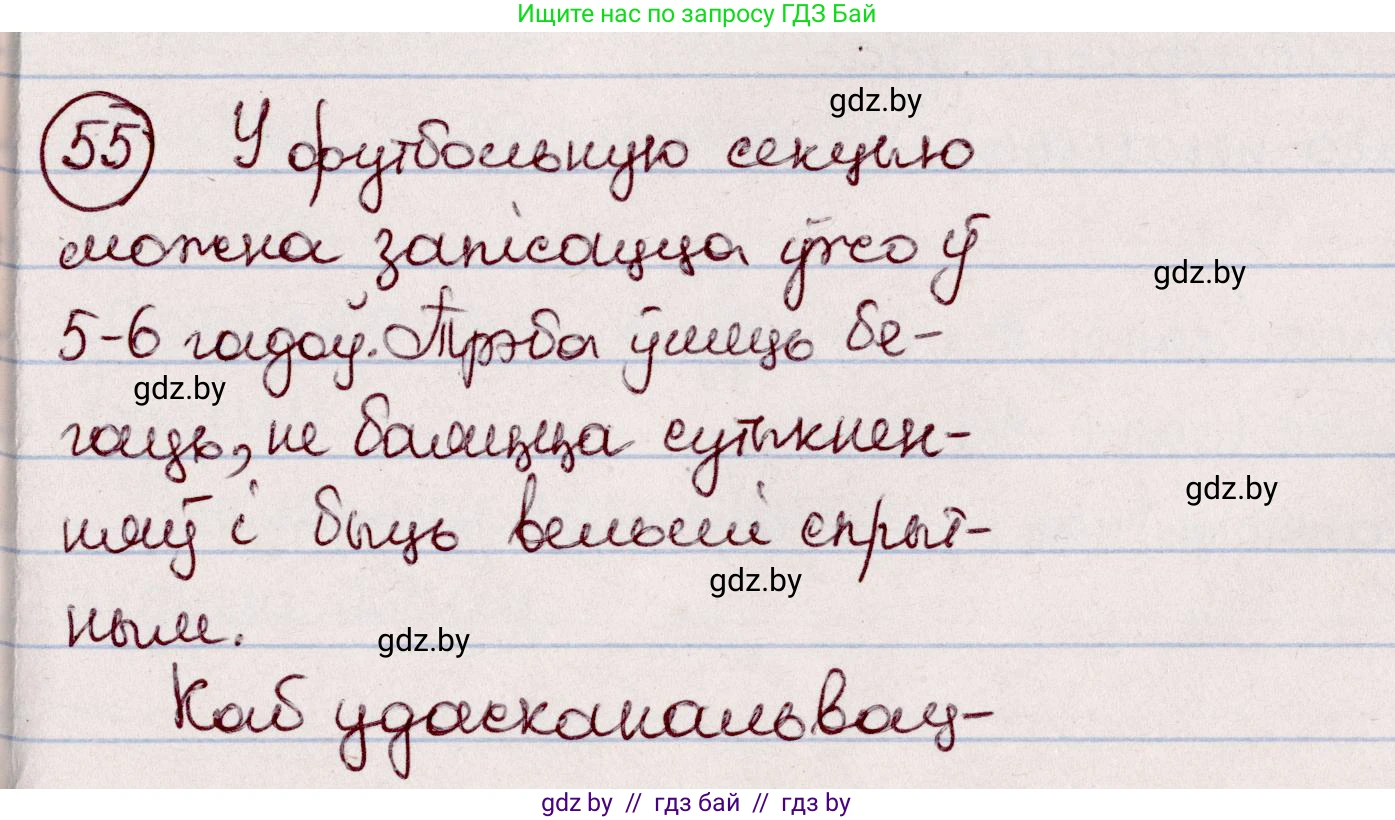 Ищите нас по запросу ГДЗ Бай
gdz.by
55 У футбольную секцыю
можна запісацца ўжо ў
gdz.by
5-6 гадоў. Трэба ўмець бе-
gdz.by
гаць, не баяцца сутыкнен-
gdz.by
няў і быць вельмі спрыт-
gdz.by
ным.
gdz.by
Каб удасканальвац-
gdz.by // гдз бай // гдз by